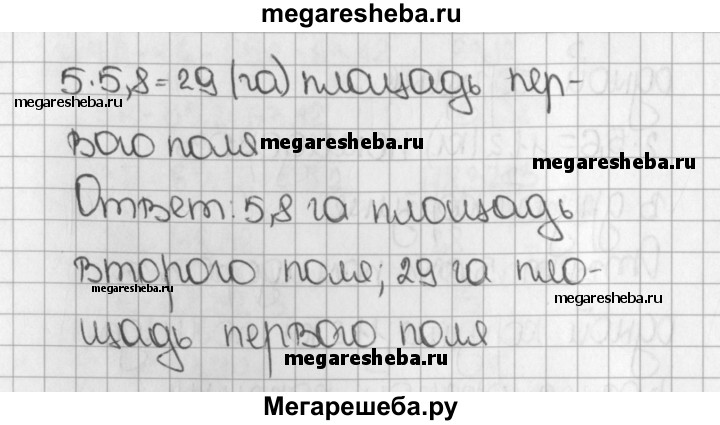 megaresheba.ru
5·5,8=29 (га) площадь пер-
megaresheba.ru
вого поля megaresheba.ru
megaresheba.ru
Ответ: 5,8 га площадь
второго поля; 29 га пло-
megaresheba.ru
megaresheba.ru
щадь первого поля
megaresheba.ru
Мегарешеба.ру